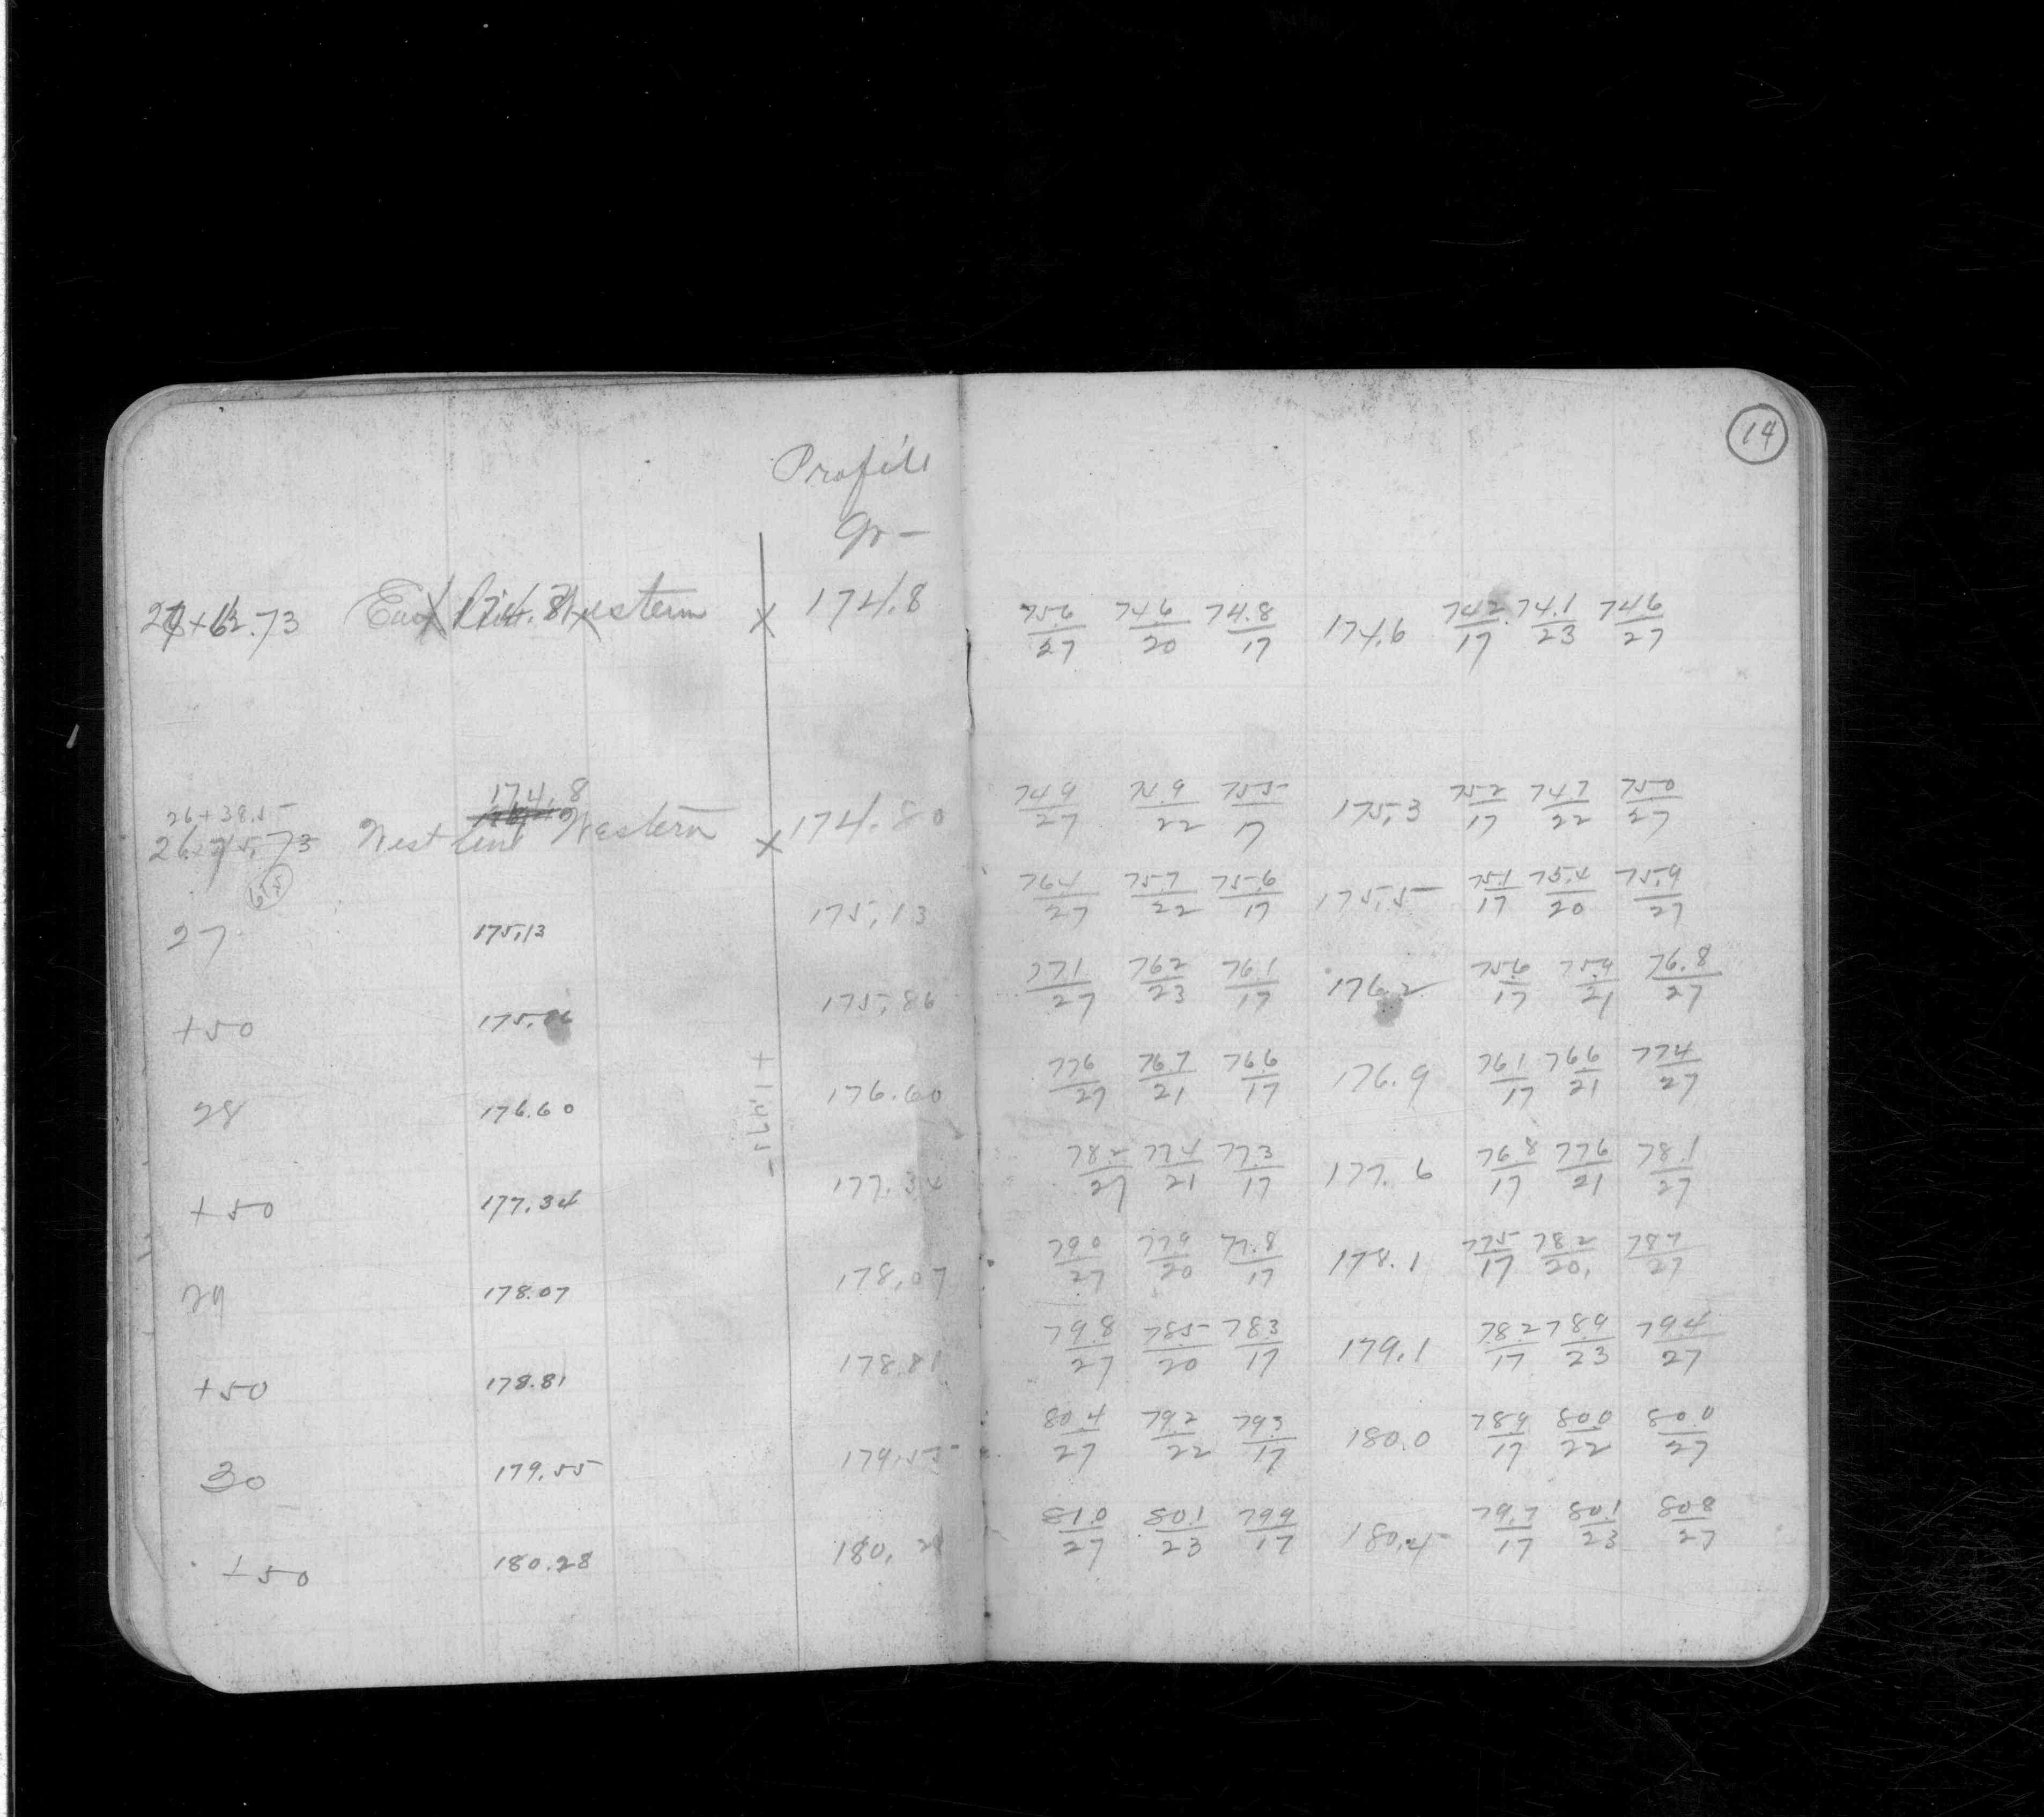 14
Profile
Gr -
+ 62.73 East Line Western x 174.8 75.6/27 74.6/20 74.8/17 174.6 74.2/17 74.1/23 74.6/27
26+38.5 174.8
26+75.73 West Line Western x 174.80 74.9/27 75.9/22 75.5/17 175.3 75.2/17 74.7/22 75.0/27
27 175.13 175.13 76.4/27 75.7/22 75.6/17 175.5 75.1/17 75.4/20 75.9/27
+50 175.86 175.86 77.1/27 76.2/23 76.1/17 176.2 75.6/17 75.9/21 76.8/27
28 176.60 176.60 77.6/27 76.7/21 76.6/17 176.9 76.1/17 76.6/21 77.4/27
+50 177.34 177.34 78.2/27 77.4/21 77.3/17 177.6 76.8/17 77.6/21 78.1/27
29 178.07 178.07 79.0/27 77.9/20 77.8/17 178.1 77.5/17 78.2/20 78.7/27
+50 178.81 178.81 79.8/27 78.5/20 78.3/17 179.1 78.2/17 78.9/23 79.4/27
30 179.55 179.55 80.4/27 79.2/22 79.3/17 180.0 78.9/17 80.0/22 80.0/27
+50 180.28 180.28 81.0/27 80.1/23 79.9/17 180.4 79.7/17 80.1/23 80.8/27